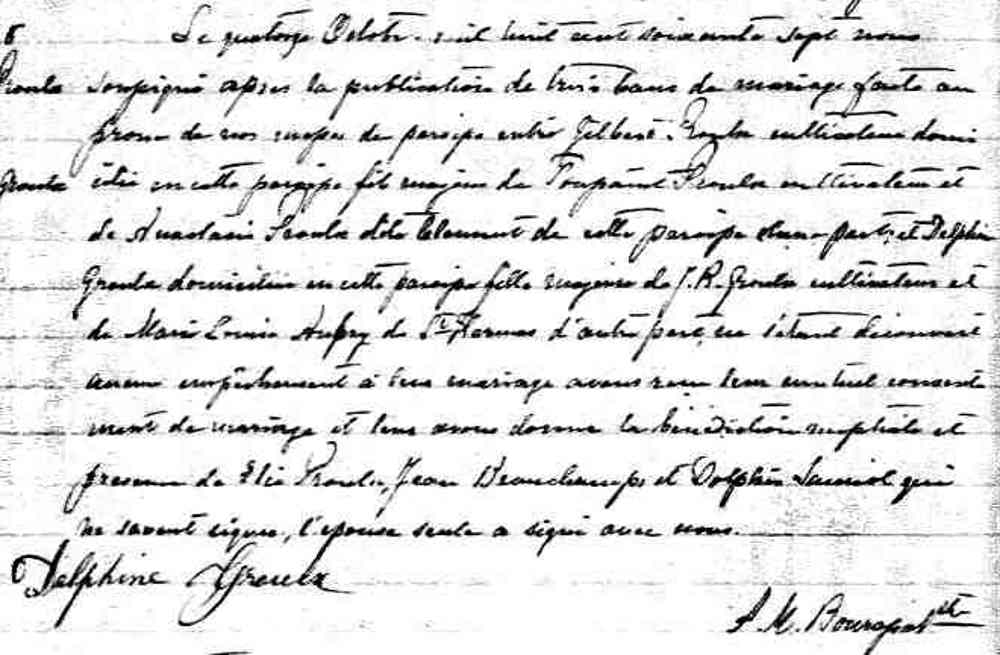 8 Le quatorze Octobre mil huit cent soixante sept nous
Proulx soussigné après la publication de trois bans de mariage faite au
prone de nos messes de paroisse entre Gilbert Proulx cultivateur domi
Groulx cilié en cette paroisse fils majeur de Toussaint Proulx cultivateur et
de Anastasie Proulx dite Clement de cette paroisse d'une part, et Delphine
Groulx domiciliée en cette paroisse fille majeure de J. R. Groulx cultivateur et
de Marie Louise Aubry de St Hermas d'autre part, ne s'étant découvert
aucun empêchement à leur mariage avons reçu leur mutuel consente
ment de mariage et leur avons donné la bénédiction nuptiale et
presence de Elie Proulx, Jean Beauchamps et Dolphin qui
ne savent signer, l'épouse seule a signé avec nous.
Delphine Groulx
ptre